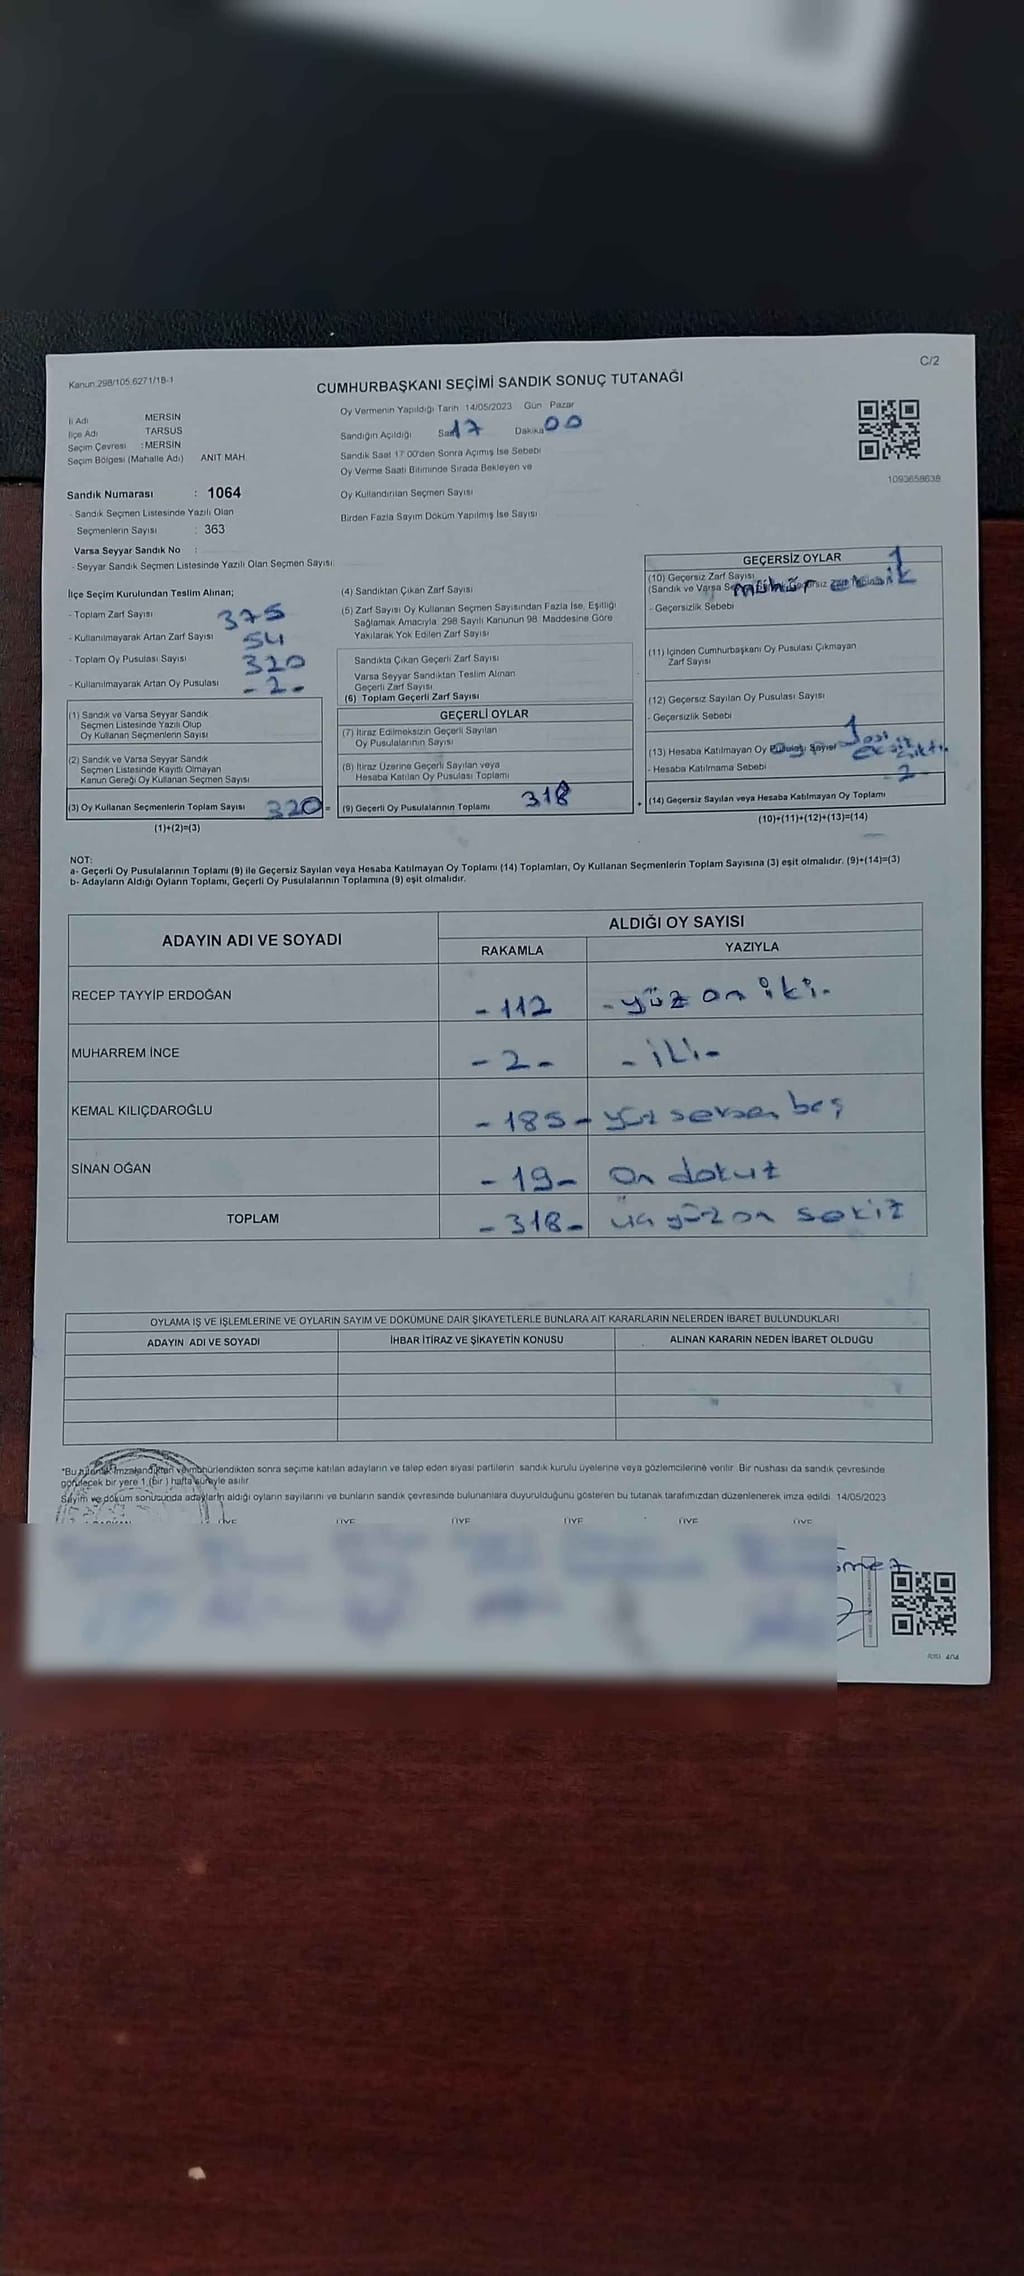 Kanun.298/105,6271/18-1
C/2
CUMHURBAŞKANI SEÇİMİ SANDIK SONUÇ TUTANAĞI
İl Adı MERSİN
İlçe Adı TARSUS
Seçim Çevresi : MERSİN
Seçim Bölgesi (Mahalle Adı) ANIT MAH.
Sandık Numarası : 1064
- Sandık Seçmen Listesinde Yazılı Olan
Seçmenlerin Sayısı : 363
Varsa Seyyar Sandık No :
- Seyyar Sandık Seçmen Listesinde Yazılı Olan Seçmen Sayısı
Oy Vermenin Yapıldığı Tarih 14/05/2023 Gün Pazar
Sandığın Açıldığı Saat 17 Dakika 00
Sandık Saat 17 00'den Sonra Açımış İse Sebebi
Oy Verme Saati Bitiminde Sırada Bekleyen ve
Oy Kullandırılan Seçmen Sayısı
Birden Fazla Sayım Döküm Yapılmış İse Sayısı
1093658638
İlçe Seçim Kurulundan Teslim Alınan;
- Toplam Zarf Sayısı 375
- Kullanılmayarak Artan Zarf Sayısı 54
- Toplam Oy Pusulası Sayısı 320
- Kullanılmayarak Artan Oy Pusulası - 2 -
(1) Sandık ve Varsa Seyyar Sandık
Seçmen Listesinde Yazılı Olup
Oy Kullanan Seçmenlerin Sayısı
(2) Sandık ve Varsa Seyyar Sandık
Seçmen Listesinde Kayıtlı Olmayan
Kanun Gereği Oy Kullanan Seçmen Sayısı
(3) Oy Kullanan Seçmenlerin Toplam Sayısı 320 =
(1)+(2)=(3)
(4) Sandıktan Çıkan Zarf Sayısı
(5) Zarf Sayısı Oy Kullanan Seçmen Sayısından Fazla İse, Eşitliği
Sağlamak Amacıyla 298 Sayılı Kanunun 98. Maddesine Göre
Yakılarak Yok Edilen Zarf Sayısı
Sandıkta Çıkan Geçerli Zarf Sayısı
Varsa Seyyar Sandıktan Teslim Alınan
Geçerli Zarf Sayısı
(6) Toplam Geçerli Zarf Sayısı
GEÇERLİ OYLAR
(7) İtiraz Edilmeksizin Geçerli Sayılan
Oy Pusulalarının Sayısı
(8) İtiraz Üzerine Geçerli Sayılan veya
Hesaba Katılan Oy Pusulası Toplamı
(9) Geçerli Oy Pusulalarının Toplamı 318 +
GEÇERSİZ OYLAR
(10) Geçersiz Zarf Sayısı 1
(Sandık ve Varsa
- Geçersizlik Sebebi mühür eksik
(11) İçinden Cumhurbaşkanı Oy Pusulası Çıkmayan
Zarf Sayısı
(12) Geçersiz Sayılan Oy Pusulası Sayısı
- Geçersizlik Sebebi
(13) Hesaba Katılmayan Oy Pusulası Sayısı 1
- Hesaba Katılmama Sebebi
(14) Geçersiz Sayılan veya Hesaba Katılmayan Oy Toplamı 2
(10)+(11)+(12)+(13)=(14)
NOT:
a- Geçerli Oy Pusulalarının Toplamı (9) ile Geçersiz Sayılan veya Hesaba Katılmayan Oy Toplamı (14) Toplamları, Oy Kullanan Seçmenlerin Toplam Sayısına (3) eşit olmalıdır. (9)+(14)=(3)
b- Adayların Aldığı Oyların Toplamı, Geçerli Oy Pusulalarının Toplamına (9) eşit olmalıdır.
ADAYIN ADI VE SOYADI ALDIĞI OY SAYISI
RAKAMLA YAZIYLA
RECEP TAYYİP ERDOĞAN - 112 - yüz on iki -
MUHARREM İNCE - 2 - - iki -
KEMAL KILIÇDAROĞLU - 185 - yüz seksen beş
SİNAN OĞAN - 19 - on dokuz
TOPLAM - 318 - üç yüz on sekiz
OYLAMA İŞ VE İŞLEMLERİNE VE OYLARIN SAYIM VE DÖKÜMÜNE DAİR ŞİKAYETLERLE BUNLARA AİT KARARLARIN NELERDEN İBARET BULUNDUKLARI
ADAYIN ADI VE SOYADI İHBAR İTİRAZ VE ŞİKAYETİN KONUSU ALINAN KARARIN NEDEN İBARET OLDUĞU
*Bu tutanak imzalandıktan ve mühürlendikten sonra seçime katılan adayların ve talep eden siyasi partilerin sandık kurulu üyelerine veya gözlemcilerine verilir. Bir nüshası da sandık çevresinde
görülecek bir yere 1 (bir) hafta süreyle asılır.
Sayım ve döküm sonucunda adayların aldığı oyların sayılarını ve bunların sandık çevresinde bulunanlara duyurulduğunu gösteren bu tutanak tarafımızdan düzenlenerek imza edildi. 14/05/2023
ÜYE ÜYE ÜYE ÜYE ÜYE ÜYE